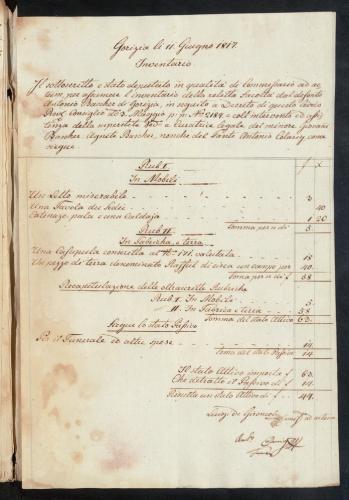 Gorizia li 11 Giugno 1817.
Inventario
Il sottoscritto è stato deputato in qualità di Commissario ad
assumere l'inventario della relitta facoltà dal defonto
Antonio Bascher di Gorizia, in seguito a Decreto di questo
Consiglio dd. 3. Maggio p. p. No. 2184. e coll'intervento ed assi-
stenza della tutrice legale del minore
Bascher Agnese Bascher, nonchè del Santo Antonio
Rub. I.
In Mobili
f x
Un Letto miserabile 3
Una Tavola due Sedie 40
Catinazo pala e una Caldaja 1 20
Somma per se di f 5.
Rub. II.
In Fabriche, e terra
Una Casupula consueta al No. 171. valutata 18
Un pezzo di terra denominato di circa un campo per 40.
Soma per se di f 58
Recapitulazione delle Rubriche
Rub. I. In Mobili 5.
II. In Fabrica e terra 58
Somma del stato Attivo 63.
Segue lo stato Passivo
Per il Funerale ed altre spese 14.
Soma del stato Passivo 14.
Il stato Attivo importa f 63.
Che detratto il Passivo di f 14.
Rimane un stato Attivo di f 49.
Luigi de